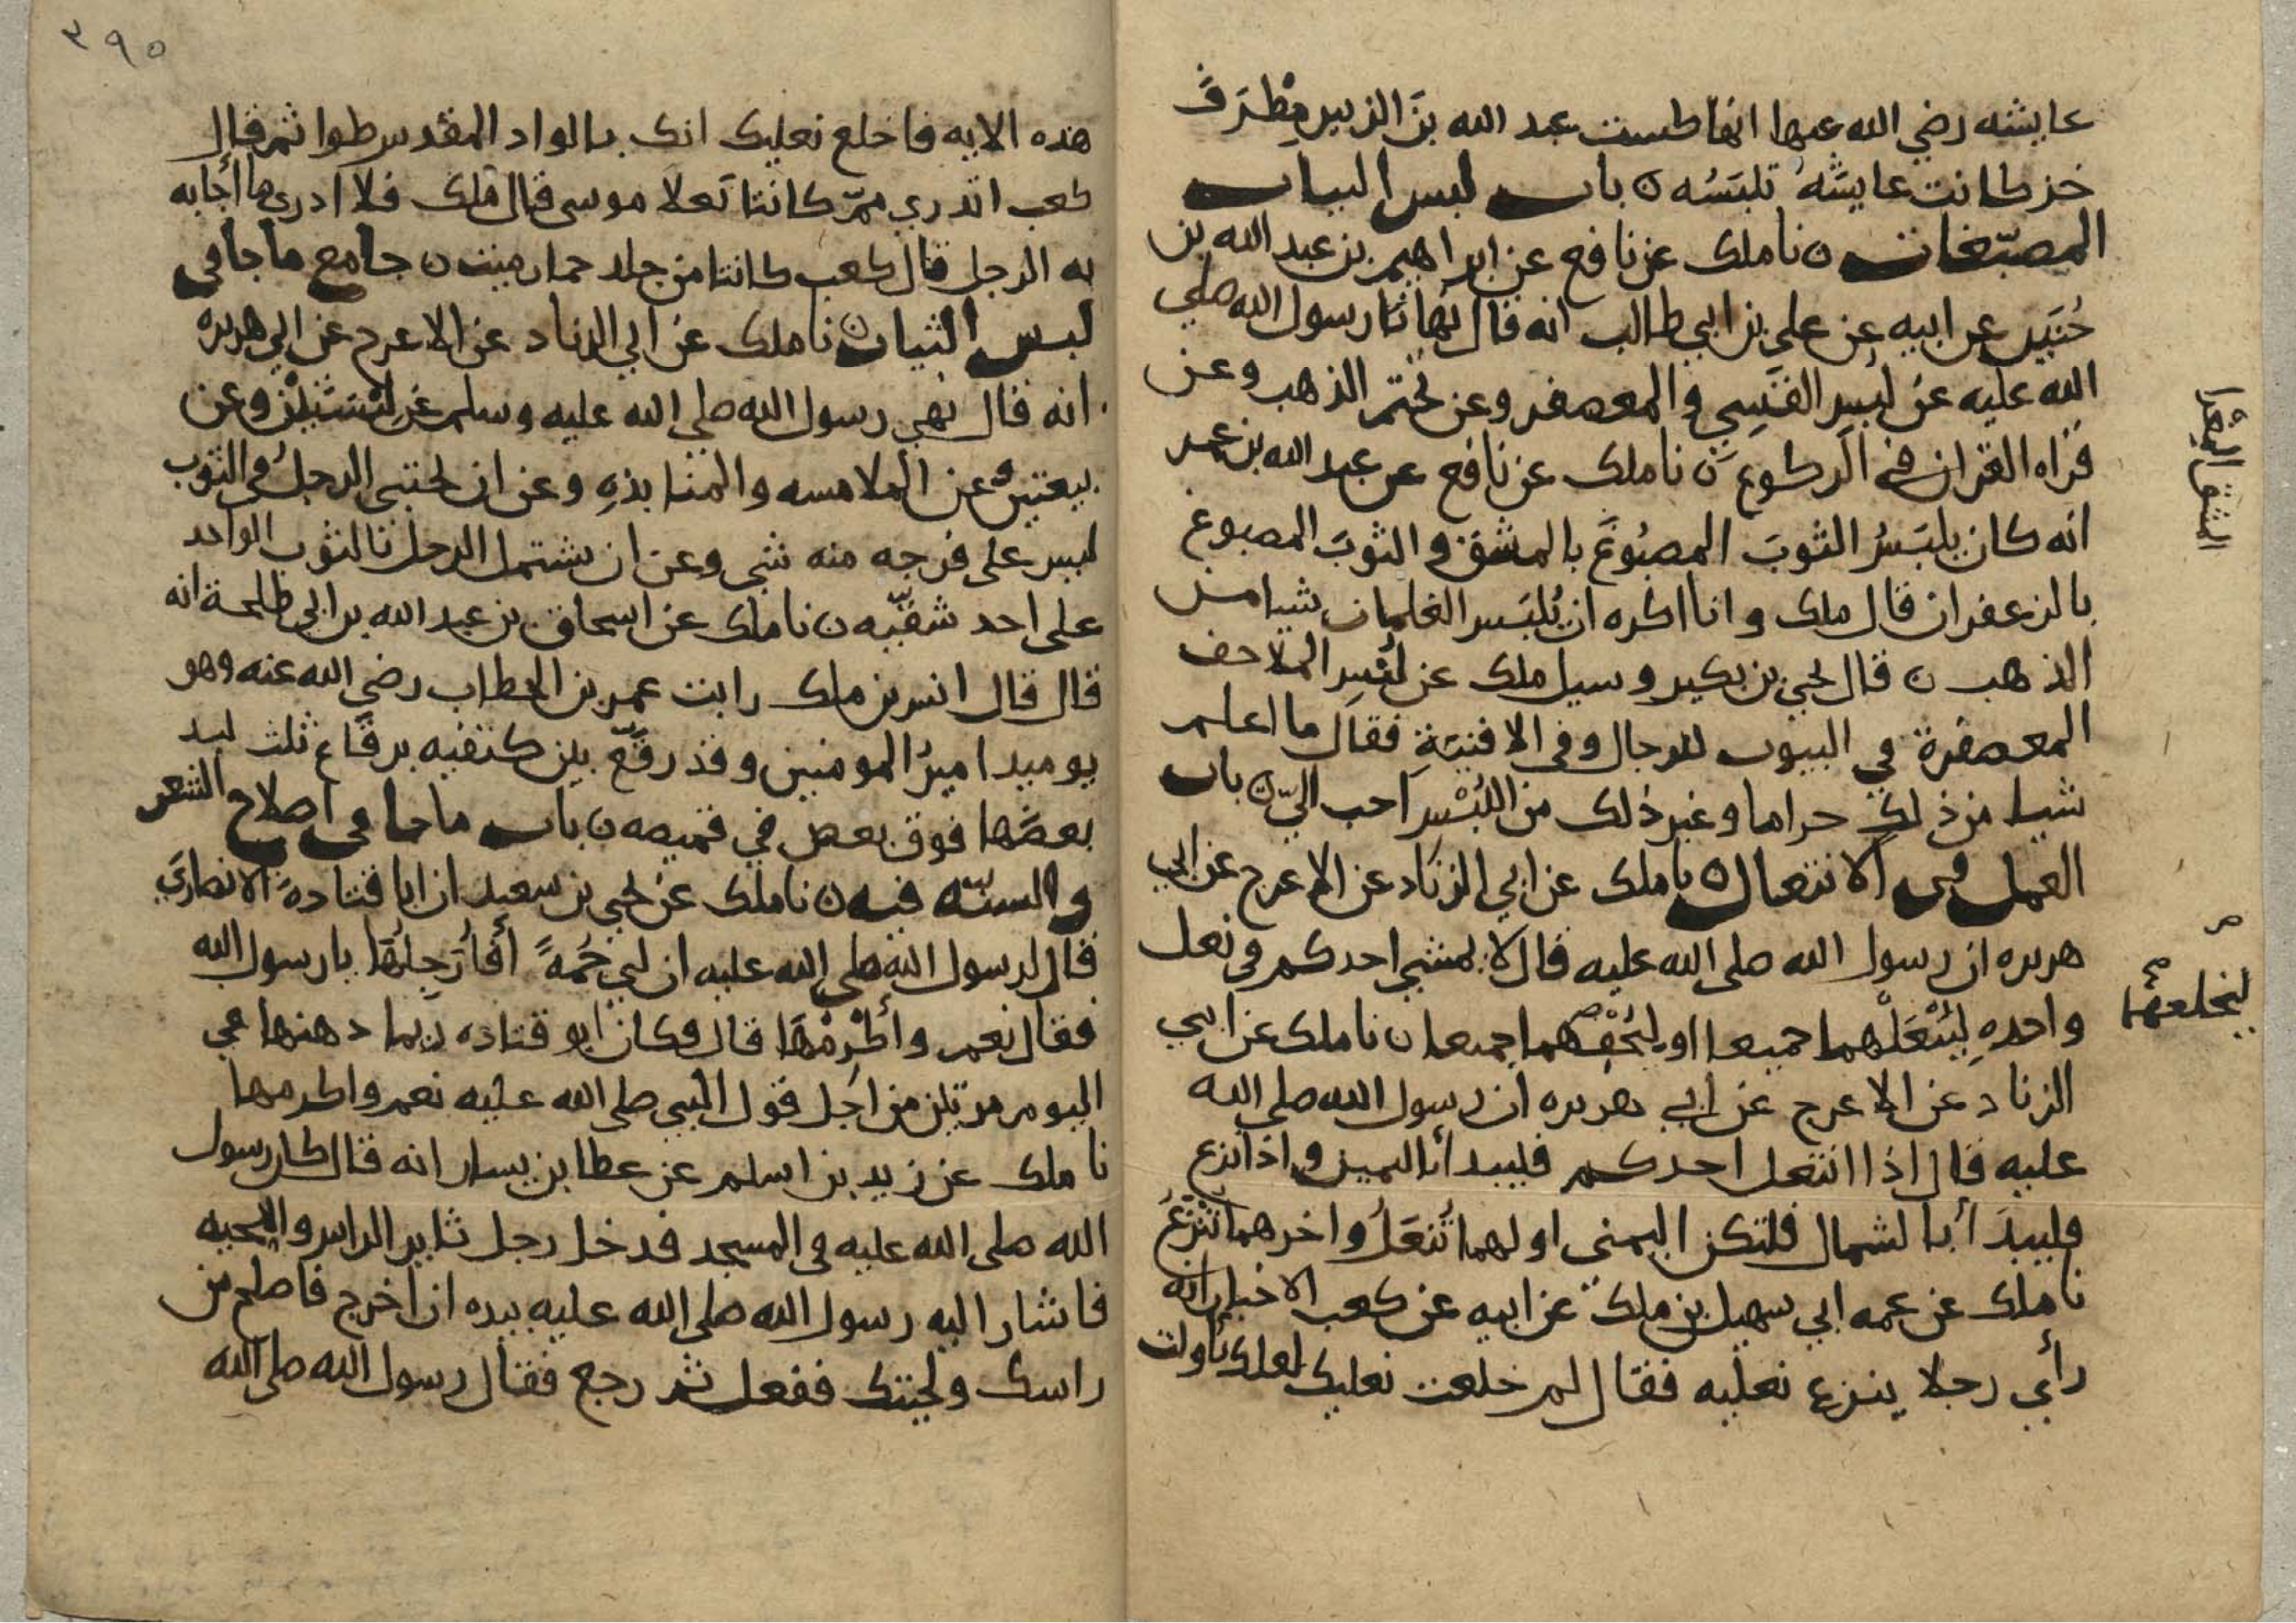 عايشه رضي الله عنها انها كست عبد الله بنَ الزبير مِطْرَفَ
خز كانت عايشَهُ تلبَسُه ن باب لبس الثياب
المصبّغات ن نا ملك عن نافع عن ابراهيم بن عبد الله بن
حُنَين عن ابيه عن علي بن ابي طالب انه قال نهانا رسول الله صلى
الله عليه عن لُبسِ القَسِي والمعصفر وعن تختم الذهب وعن
قراه القران في الركوع ن نا ملك عن نافع عن عبد الله بن عمر
انه كان يلبَسُ الثوبَ المصبُوغَ بالمشق والثوبَ المصبوغ
بالزعفران قال ملك وانا اكره ان يُلبَس الغلمان شيا من
الذهب ن قال يحيى بن بكير وسيل ملك عن لُبْسِ الملاحف
المعصفرة في البيوت للرجال وفي الافنيَةِ فقال ما اعلم
شيا من ذلك حراما وغير ذلك من اللُبْسِ احب اليّ ن باب
العمل في الانتعال ن نا ملك عن ابي الزناد عن الاعرج عن ابي
هريره ان رسول الله صلى الله عليه قال لا يمشي احدكم في نعل
واحدهِ ليُنْعَلْهما جميعا او ليُحْفِهما جميعا ن نا ملك عن ابي
الزناد عن الاعرج عن ابي هريره ان رسول الله صلى الله
عليه قال اذا انتعل احدكم فليبدأ باليمين واذا نزع
فليبدَأ بالشمال فلتكن اليمنى اولهما تُنعَلُ واخرهما تُنْزَعُ
نا ملك عن عمه ابي سهيل بن ملك عن ابيه عن كعب الاخبار انه
رأى رجلا ينزع نعليه فقال لم خلعت نعليك لعلك تأولت
المشق المغرا
ليخلعهما
٣٩٥
هذه الايه فاخلع نعليك انك بالواد المقدس طوا ثم قال
كعب اتدري ممّ كانتا نعلا موسى قال ملك فلا ادري ما أجابه
به الرجل قال كعب كانتا من جلد حمار ميت ن جامع ما جا في
لبس الثياب ن نا ملك عن ابي الزناد عن الاعرج عن ابي هريره
انه قال نهى رسول الله صلى الله عليه وسلم عن لبْسَتَيْن وعن
بيعتين وعن الملامسه والمنابذهِ وعن ان يحتبي الرجلُ في الثوب
ليس على فرجه منه شي وعن ان يشتمل الرجل بالثوب الواحد
على احد شقّيه ن نا ملك عن اسحاق بن عبد الله بن ابي طلحة انه
قال قال انس بن ملك رايت عمر بن الخطاب رضي الله عنه وهو
يوميد اميرُ المومنين وقد رقّع بين كتفيه برقاع ثلث لبد
بعضَها فوق بعض في قميصه ن باب ما جا في اصلاح الشعر
والسنّه فيه ن نا ملك عن يحيى بن سعيد ان ابا قتادهَ الانصاري
قال لرسول الله صلى الله عليه ان لي جُمةً أفأُرَجِلُها يا رسول الله
فقال نعم وأكْرِمْها قال فكان ابو قتاده ربما دهنها في
اليوم مرتين من اجل قول النبي صلى الله عليه نعم واكرمها
نا ملك عن زيد بن اسلم عن عطا بن يسار انه قال كان رسول
الله صلى الله عليه في المسجد فدخل رجل ثاير الراس واللحيه
فاشار اليه رسول الله صلى الله عليه بيده ان اخرج فاصلح من
راسك ولحيتك ففعل ثم رجع فقال رسول الله صلى الله